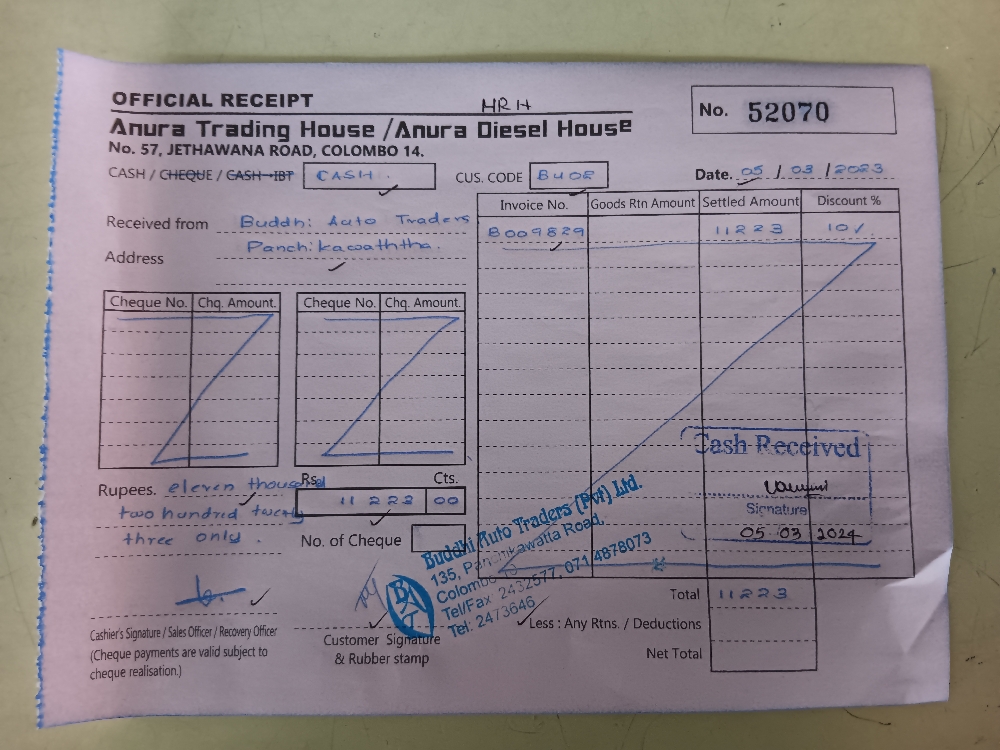 OFFICIAL RECEIPT
HRH
No. 52070
Anura Trading House / Anura Diesel House
No. 57, JETHAWANA ROAD, COLOMBO 14.
CASH / CHEQUE / CASH-IBT CASH.
CUS. CODE BUOE
Date. 05 / 03 / 2023
Received from Buddhi Auto Traders
Address Panchikawaththa.
Invoice No. Goods Rtn Amount Settled Amount Discount %
B009829 11223 10/.
Cheque No. Chq. Amount. Cheque No. Chq. Amount.
Cash Received
Signature
05 03 2024
Rupees. eleven thousand
two hundred twenty
three only.
Rs. Cts.
11 223 00
No. of Cheque
Buddhi Auto Traders (Pvt) Ltd.
135, Panchikawatta Road,
Colombo 10
Tel/Fax 2432577, 071 4878073
Tel: 2473646
BAT
Total 11223
Less : Any Rtns. / Deductions
Net Total
Cashier's Signature / Sales Officer / Recovery Officer
(Cheque payments are valid subject to
cheque realisation.)
Customer Signature
& Rubber stamp